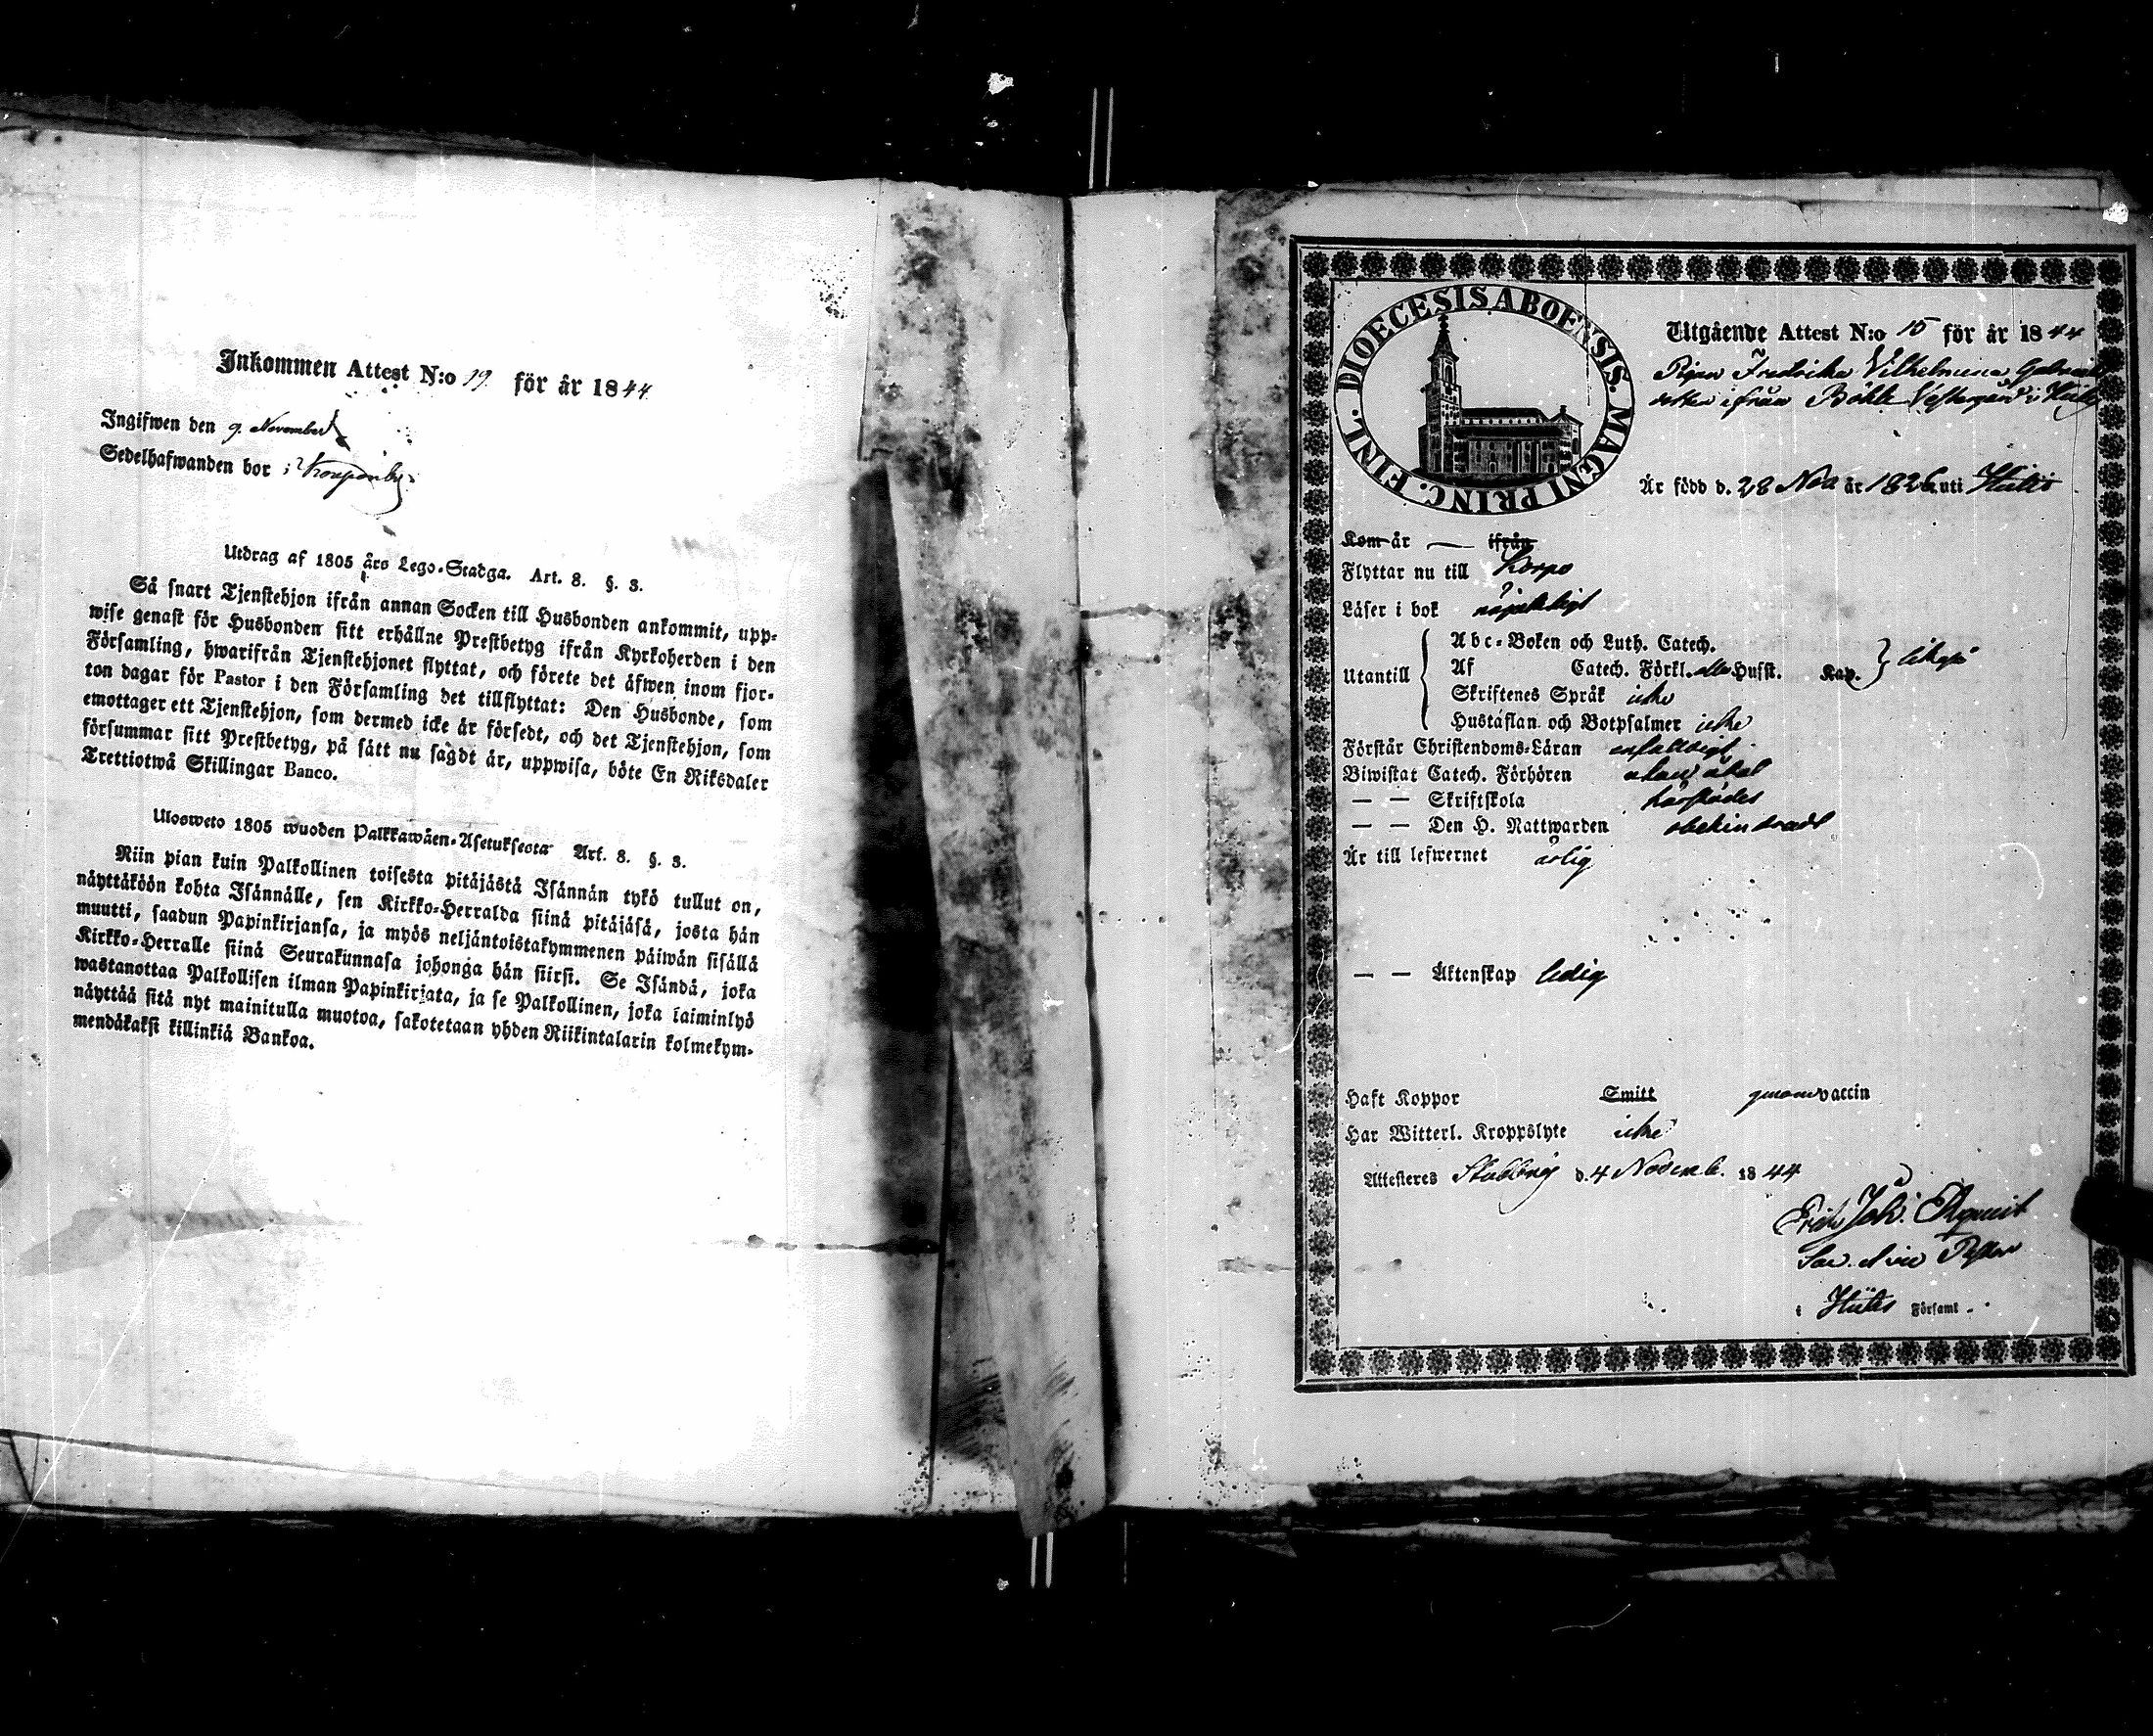 Inkommen Attest N:o 19. för år 1844
Ingifwen den 9. November
Sedelhafwanden bor i
Utdrag af 1805 års Lego-Stadga. Art. 8. §. 3.
Så snart Tjenstehjon ifrån annan Socken till Husbonden ankommit, upp-
wise genast för Husbonden sitt erhållne Prestbetyg ifrån Kyrkoherden i den
Församling, hwarifrån Tjenstehjonet flyttat, och förete det äfwen inom fjor-
ton dagar för Pastor i den Församling det tillflyttat: Den Husbonde, som
emottager ett Tjenstehjon, som dermed icke är försedt, och det Tjenstehjon, som
försummar sitt Prestbetyg, på sätt nu sagdt är, uppwisa, böte En Riksdaler
Trettiotwå Skillingar Banco.
Ulosweto 1805 wuoden Palkkawäen-Asetuksesta Art. 8. §. 3.
Niin pian kuin Palkollinen toisesta pitäjästä Isännän tykö tullut on,
näyttäköön kohta Isännälle, sen Kirkko-Herralda siinä pitäjäsä, josta hän
muutti, saadun Papinkirjansa, ja myös neljäntoistakymmenen päiwän sisällä
Kirkko-Herralle siinä Seurakunnasa johonga hän siirsi. Se Isändä, joka
wastanottaa Palkollisen ilman Papinkirjata, ja se Palkollinen, joka laiminlyö
näyttää sitä nyt mainitulla muotoa, sakotetaan yhden Riikintalarin kolmekym-
mendäkaksi killinkiä Bankoa.
DIOECESIS ABOENSIS. MAGNI PRINC. FINL.
Utgående Attest N:o 15 för år 1844
Pigan Fredrika Vilhelmina Gabriels
dotter ifrån Böhle Vestergård i
Är född d. 28 Nov år 1826 uti Hitis
Kom år — ifrån
Flyttar nu till Korpo
Läser i bok nöjaktigt
Utantill
Abc-Boken och Luth. Catech.
Af Catech. Förkl. Husst. Kap.
Skriftenes Språk icke
Hustaflan och Botpsalmer icke
Förstår Christendoms-Läran enfaldigt
Biwistat Catech. Förhören utan åtal
— — Skriftskola härstädes
— — Den H. Nattwarden obehindradt
Är till lefwernet ärlig
— — Äktenskap ledig
Haft Koppor Smitt genom vaccin
Har Witterl. Kroppslyte icke
Attesteres d. 4 Novemb. 1844
Erik Joh.
i Hitis Församl.